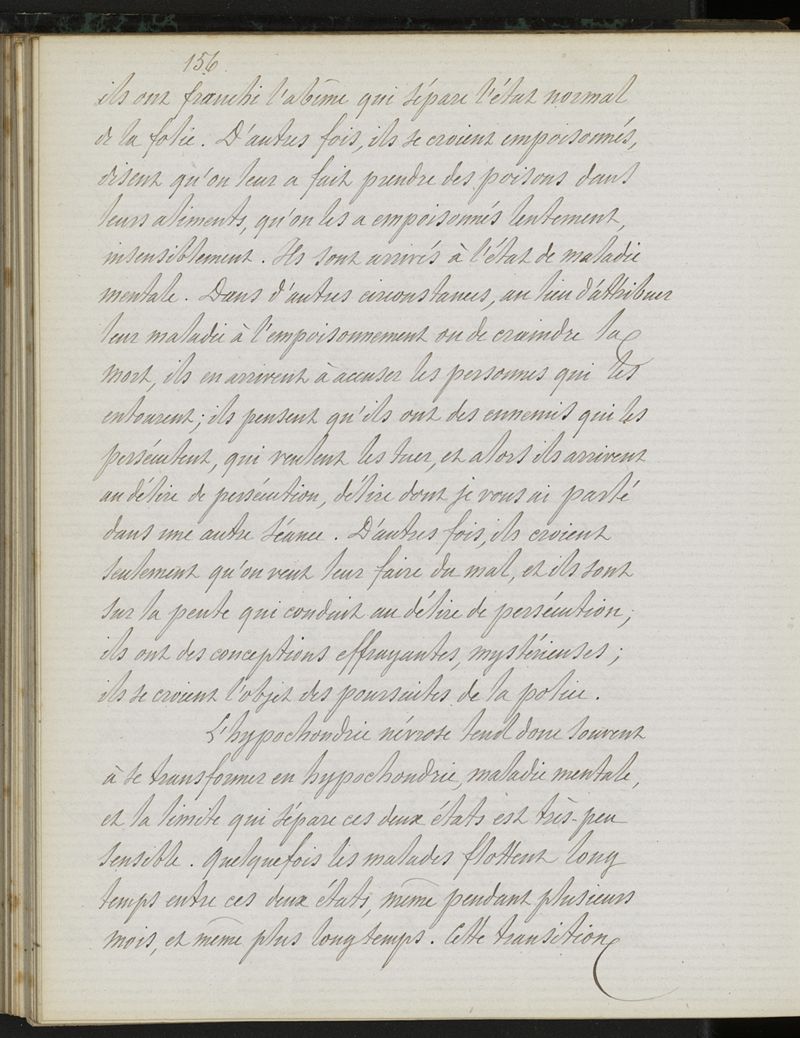 156
ils ont franchi l'abîme qui sépare l'état normal
de la folie. D'autres fois, ils se croient empoisonnés,
disent qu'on leur a fait prendre des poisons dans
leurs aliments, qu'on les a empoisonnés lentement,
insensiblement. Ils sont arrivés à l'état de maladie
mentale. Dans d'autres circonstances, au lieu d'attribuer
leur maladie à l'empoisonnement ou de craindre la
mort, ils en arrivent à accuser les personnes qui les
entourent; ils pensent qu'ils ont des ennemis qui les
persécutent, qui veulent les tuer, et alors ils arrivent
au délire de persécution, délire dont je vous ai parlé
dans une autre séance. D'autres fois, ils croient
seulement qu'on veut leur faire du mal, et ils sont
sur la pente qui conduit au délire de persécution;
ils ont des conceptions effrayantes, mystérieuses;
ils se croient l'objet des poursuites de la police.
L'hypochondrie névrose tend donc souvent
à se transformer en hypochondrie, maladie mentale,
et la limite qui sépare ces deux états est très-peu
sensible. Quelquefois les malades flottent long
temps entre ces deux états, même pendant plusieurs
mois, et même plus longtemps. Cette transition